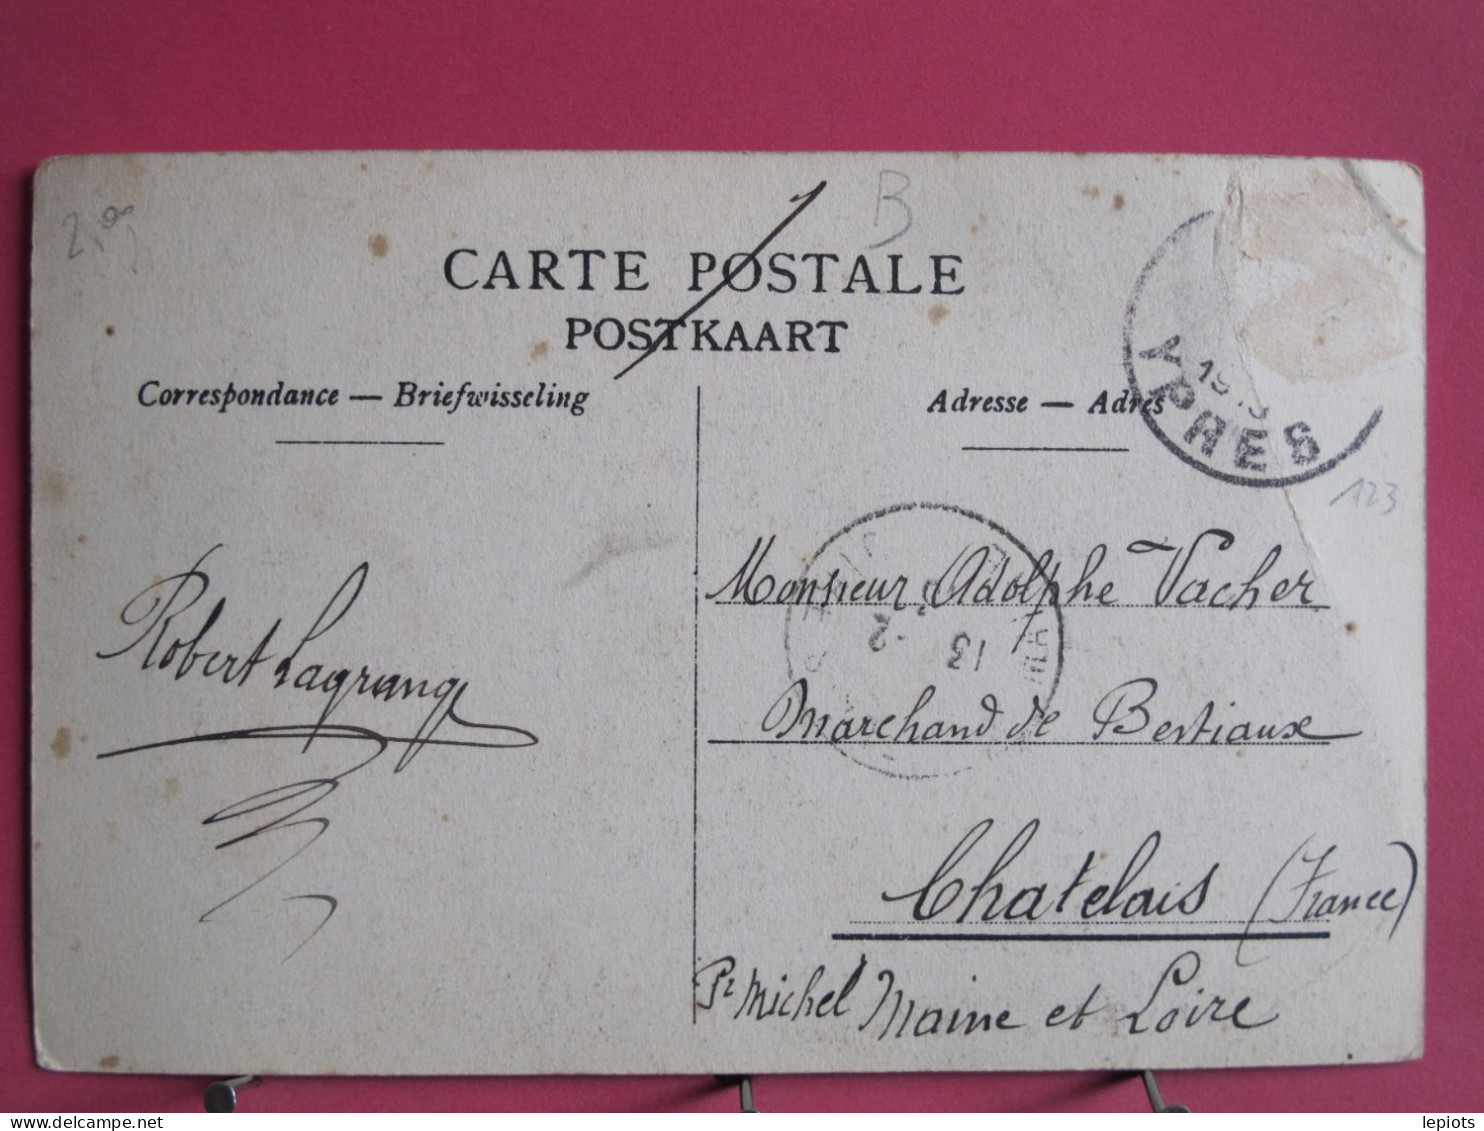 2,00
B
CARTE POSTALE
POSTKAART
Correspondance — Briefwisseling
Adresse — Adres
YPRES
123
Monsieur Adolphe Vacher
13 2
Robert Lagrange
Marchand de Bestiaux
Chatelais (France)
Pr Michel Maine et Loire
lepiots